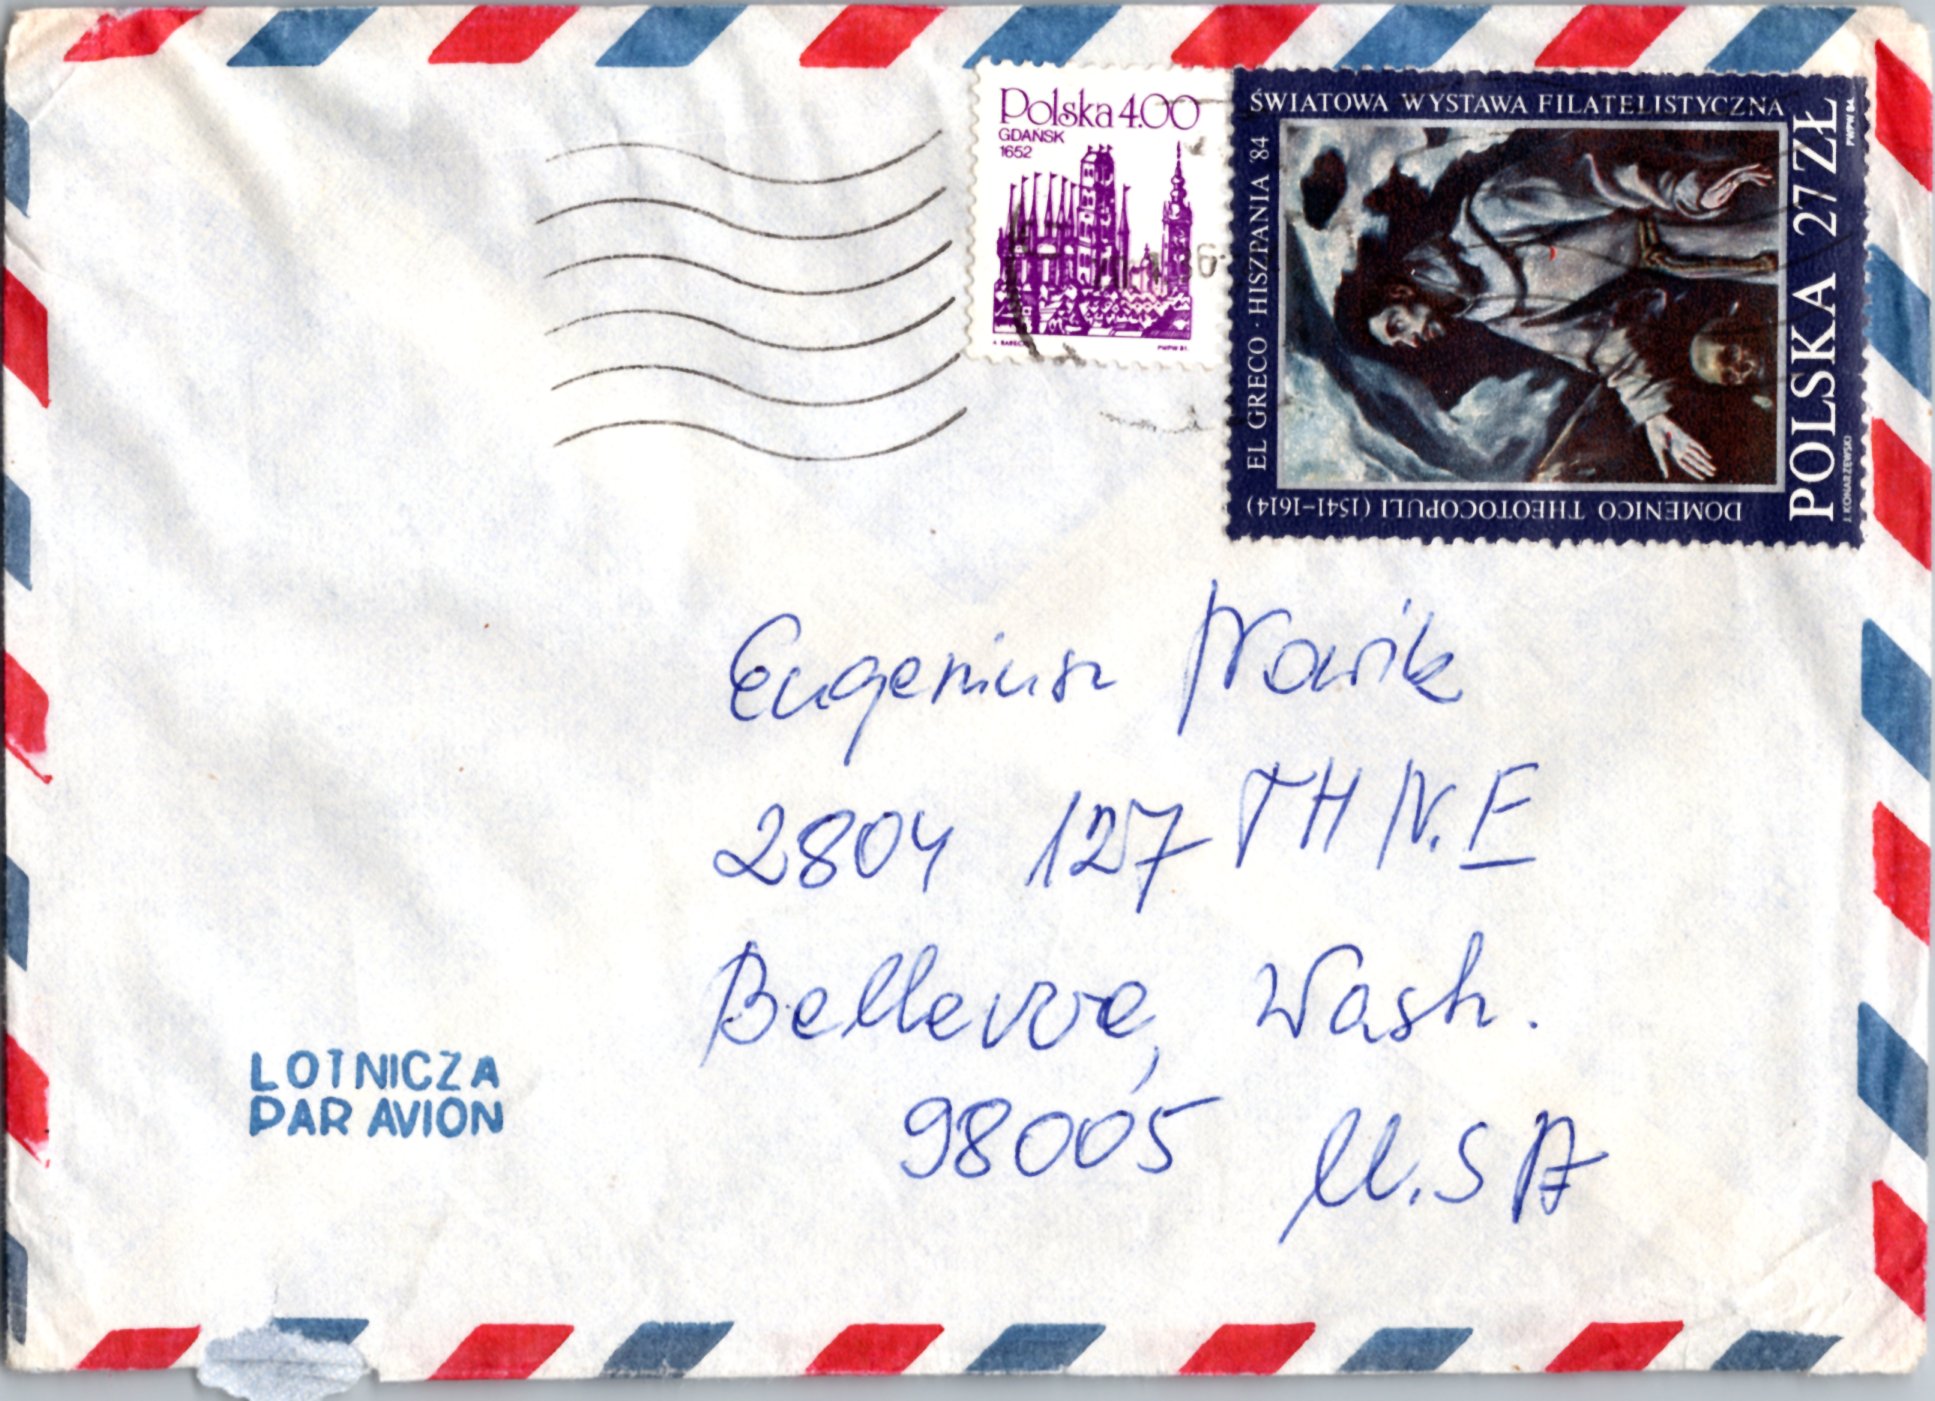 Polska 4.00
GDAŃSK
1652
PWPW 81.
ŚWIATOWA WYSTAWA FILATELISTYCZNA
EL GRECO · HISZPANIA '84
DOMENICO THEOTOCOPULI (1541-1614)
POLSKA 27 ZŁ
PWPW 84.
J. KONARZEWSKI
Eugeniusz Nowik
2804 127 TH N.E
Bellevue, Wash.
98005 U.S A
LOTNICZA
PAR AVION